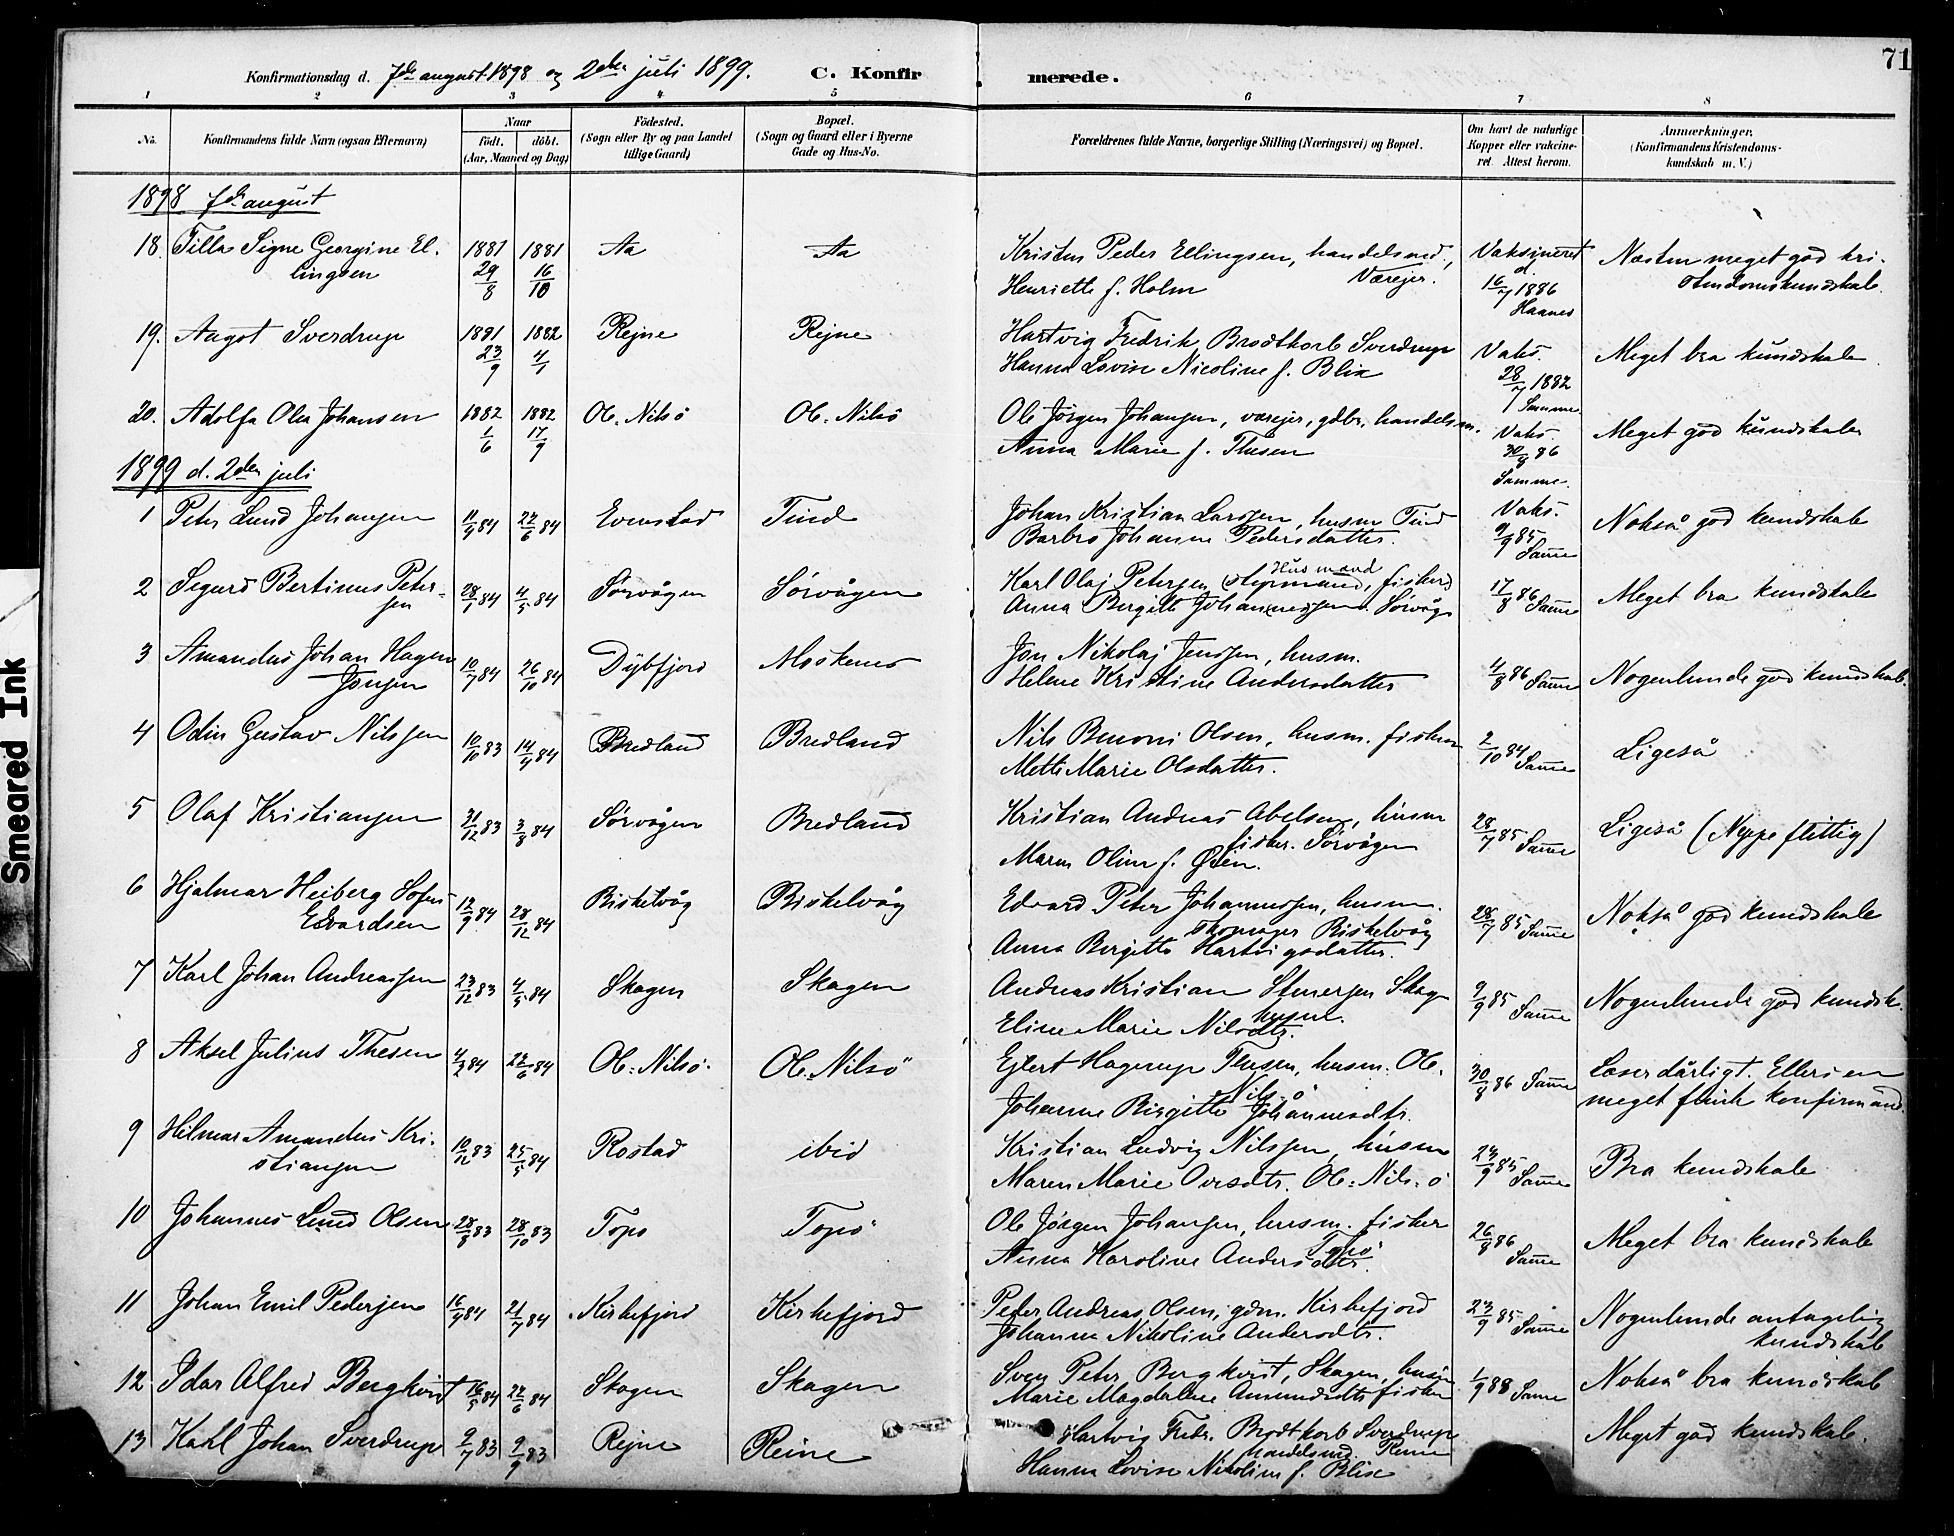 71
Konfirmationsdag d. 7de august 1898 og 2den juli 1899. C. Konfirmerede.
1 2 3 4 5 6 7 8
No. Konfirmandens fulde Navn (ogsaa Efternavn) Naar Födt. döbt. (Aar, Maaned og Dag) Födested. (Sogn eller By og paa Landet tillige Gaard) Bopæl. (Sogn og Gaard eller i Byerne Gade og Hus-No. Forældrenes fulde Navne, borgerlige Stilling (Næringsvei) og Bopæl. Om havt de naturlige Kopper eller vakcineret. Attest herom. Anmærkninger. (Konfirmandens Kristendomskundskab m. V.)
1898 7de august
18. Tilla Signe Georgine El- 1881 1881 Aa Aa Kristen Peder Ellingsen, handelsmd., Vaksineret Næsten meget god kri-
lingsen 29/8 16/10 Henriette f. Holm Værejer. d. 16/7 1886 Haanes stendomskundskab.
19. Aagot Sverdrup 1881 1882 Rejne Rejne Hartvig Fredrik Brodtkorb Sverdrup Vaks. Meget bra kundskab
23/9 4/1 Hanna Lovise Nicoline f. Blix 28/7 1882 Samme
20. Adolfa Olea Johansen 1882 1882 Ol. Nilsö Ol. Nilsö Ole Jörgen Johansen, værejer, gdbr. handelsm. Vaks. Meget god kundskab
1/6 17/9 Anna Marie f. Thesen 30/8 86 Samme.
1899 d. 2den juli
1 Peter Lund Johansen 11/4 84 22/6 84 Evenstad Tind Johan Kristian Larssen, husm Tind Vaks. Nokså god kundskab
Barbro Johanne Pedersdatter. 9/9 85 Samme
2 Sigurd Bertinus Peter- 28/1 84 4/5 84 Sörvågen Sörvågen Karl Olaj Petersen (styrmand, Husmand fisker) 17/8 86 Samme Meget bra kundskab
sen Anna Bergitte Johannessen. Sörvåg
3 Amandus Johan Hagen 10/7 84 26/10 84 Dybfjord Moskenes Jon Nikolaj Jenssen, husm. 4/8 86 Samme Nogenlunde god kundskab.
Jonsen Helene Kristine Andersdatter
4 Odin Gustav Nilssen 10/10 83 14/4 84 Bredland Bredland Nils Benoni Olsen, husm. fisker 2/10 84 Samme Ligeså
Mette Marie Olsdatter.
5 Olaf Kristiansen 31/12 83 3/8 84 Sörvågen Bredland Kristian Andreas Abelsen, husm 28/7 85 Samme Ligeså (Neppe flittig)
fisker. Sörvågen
Maren Oline f. Øien.
6 Hjalmar Heiberg Sofus 12/9 84 28/12 84 Biskelvåg Biskelvåg Edvard Peter Johannessen, husm. 28/7 85 Samme Nokså god kundskab
Edvardsen skomager Biskelvåg
Anna Bergitte Hartvigsdatter.
7 Karl Johan Andreassen 23/12 83 4/5 84 Skagen Skagen Andreas Kristian Stenersen Skag 9/9 85 Samme Nogenlunde god kundsk.
husm.
Eline Marie Nilsdtr.
8 Aksel Julius Thesen 4/2 84 22/6 84 Ol. Nilsö. Ol. Nilsö Ejlert Hagerup Thesen, husm. Ol. 30/8 86 Samme Læser dårligt. Ellers en
Nilsö
Johanne Birgitte Johannesdtr. meget flink konfirmand.
9 Hilmar Amandus Kri- 10/12 83 25/5 84 Rostad ibid Kristian Ludvig Nilssen, husm 23/9 85 Samme Bra kundskab
stiansen Maren Marie Ovesdtr. Ol. Nils. ö
10 Johannes Lund Olsen 28/8 83 28/10 83 Topö Topö Ole Jörgen Johansen, husm. fisker 26/8 86 Samme Meget bra kundskab
Topö
Anna Karoline Andersdtr.
11 Johan Emil Pedersen 16/4 84 21/7 84 Kirkefjord Kirkefjord Peder Andreas Olsen, gdm. Kirkefjord 23/9 85 Samme Nogenlunde antagelig
Johanna Nikoline Andersdtr. kundskab
12 Idar Alfred Bergkvist 16/5 84 22/6 84 Skagen Skagen Sven Peter Bergkvist, Skagen, husm 1/9 88 Samme Nokså bra kundskab
Marie Magdalene Amundsdtr fisker
13 Karl Johan Sverdrup 9/7 83 9/9 83 Rejne Reine Hartvig Fredr. Brodtkorb Sverdrup Meget god kundskab.
Handelsmd. Reine
Hanna Lovise Nikoline f. Blix
Smeared Ink